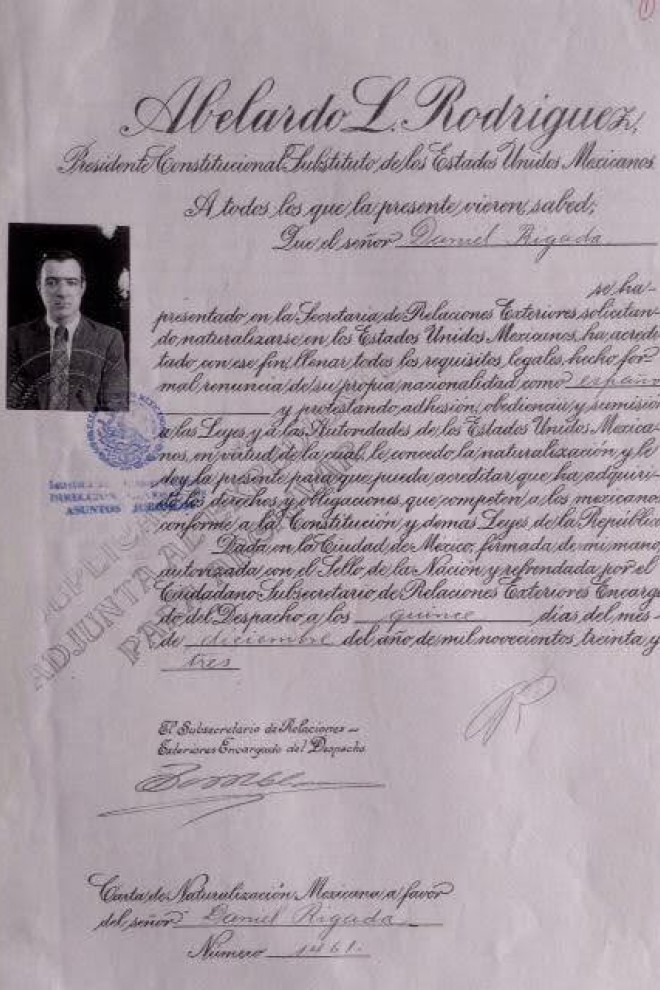 Abelardo L. Rodriguez,
Presidente Constitucional Substituto, de los Estados Unidos Mexicanos
A todos los que la presente vieren, sabed;
Que el señor Daniel Rigada
se ha
presentado en la Secretaria de Relaciones Exteriores, solicitan-
do naturalizarse en los Estados Unidos Mexicanos, ha acredi-
tado con ese fin, llenar todos los requisitos legales, hecho for-
mal renuncia de su propia nacionalidad como español
y protestando adhesión, obediencia y sumisión
a las Leyes y a las Autoridades de los Estados Unidos Mexica-
nos, en virtud de la cual, le concedo la naturalización y le
doy la presente para que pueda acreditar que ha adquiri-
do los derechos y obligaciones que competen a los mexicanos,
conforme a la Constitución y demas Leyes de la República
Dada en la Ciudad de Mexico, firmada de mi mano,
autorizada con el Sello de la Nación y refrendada por el
Ciudadano Subsecretario de Relaciones Exteriores Encarga-
do del Despacho a los quince días del mes
de diciembre del año de mil novecientos, treinta y
tres
DIRECCION
ASUNTOS JURIDICOS
DUPLICA
ADJUNTA AL
PA
El Subsecretario de Relaciones
Exteriores Encargado del Despacho
Carta de Naturalización Mexicana a favor
del señor Daniel Rigada
Número 1461.